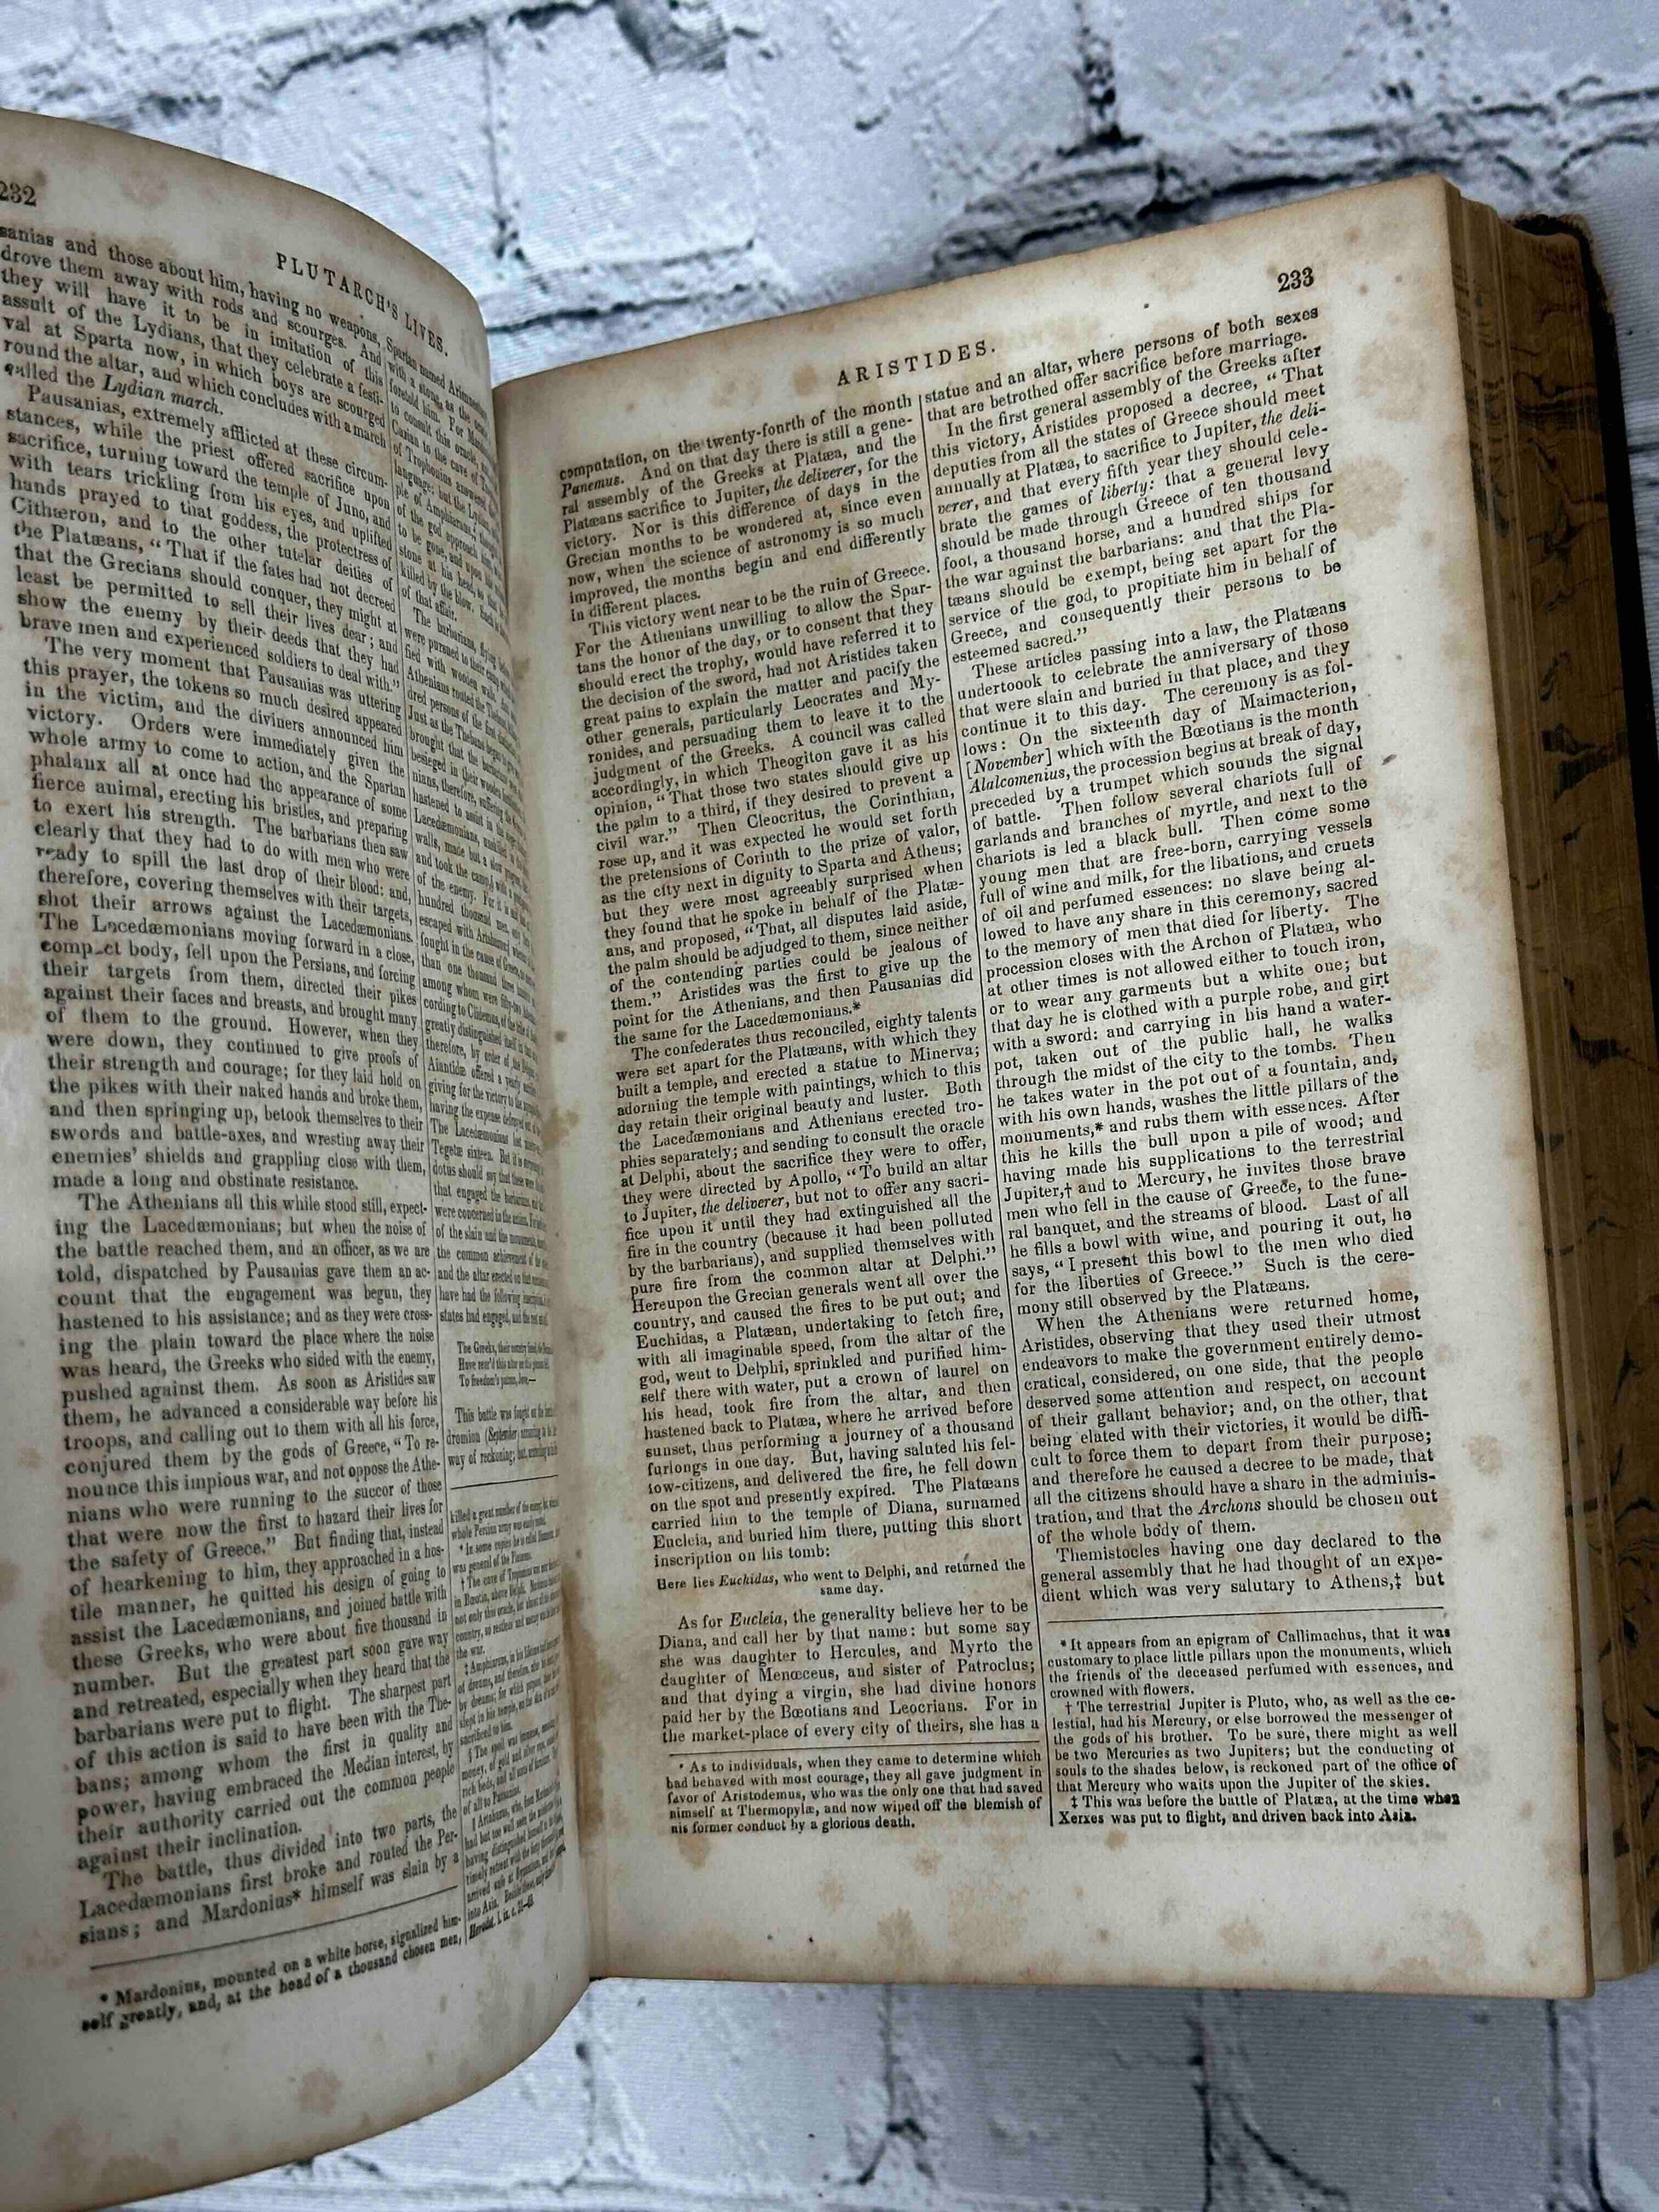 232
PLUTARCH'S LIVES.
sanias and those about him, having no weapons,
drove them away with rods and scourges. And
they will have it to be in imitation of this
assult of the Lydians, that they celebrate a festi-
val at Sparta now, in which boys are scourged
round the altar, and which concludes with a march
called the Lydian march.
Pausanias, extremely afflicted at these circum-
stances, while the priest offered sacrifice upon
sacrifice, turning toward the temple of Juno, and
with tears trickling from his eyes, and uplifted
hands prayed to that goddess, the protectress of
Cithæron, and to the other tutelar deities of
the Platæans, "That if the fates had not decreed
that the Grecians should conquer, they might at
least be permitted to sell their lives dear; and
show the enemy by their deeds that they had
brave men and experienced soldiers to deal with."
The very moment that Pausanias was uttering
this prayer, the tokens so much desired appeared
in the victim, and the diviners announced him
victory. Orders were immediately given the
whole army to come to action, and the Spartan
phalanx all at once had the appearance of some
fierce animal, erecting his bristles, and preparing
to exert his strength. The barbarians then saw
clearly that they had to do with men who were
ready to spill the last drop of their blood: and,
therefore, covering themselves with their targets,
shot their arrows against the Lacedæmonians.
The Lacedæmonians moving forward in a close,
comp ct body, fell upon the Persians, and forcing
their targets from them, directed their pikes
against their faces and breasts, and brought many
of them to the ground. However, when they
were down, they continued to give proofs of
their strength and courage; for they laid hold on
the pikes with their naked hands and broke them,
and then springing up, betook themselves to their
swords and battle-axes, and wresting away their
enemies' shields and grappling close with them,
made a long and obstinate resistance.
The Athenians all this while stood still, expect-
ing the Lacedæmonians; but when the noise of
the battle reached them, and an officer, as we are
told, dispatched by Pausanias gave them an ac-
count that the engagement was begun, they
hastened to his assistance; and as they were cross-
ing the plain toward the place where the noise
was heard, the Greeks who sided with the enemy,
pushed against them. As soon as Aristides saw
them, he advanced a considerable way before his
troops, and calling out to them with all his force,
conjured them by the gods of Greece, "To re-
nounce this impious war, and not oppose the Athe-
nians who were running to the succor of those
that were now the first to hazard their lives for
the safety of Greece." But finding that, instead
of hearkening to him, they approached in a hos-
tile manner, he quitted his design of going to
assist the Lacedæmonians, and joined battle with
these Greeks, who were about five thousand in
number. But the greatest part soon gave way
and retreated, especially when they heard that the
barbarians were put to flight. The sharpest part
of this action is said to have been with the The-
bans; among whom the first in quality and
power, having embraced the Median interest, by
their authority carried out the common people
against their inclination.
The battle, thus divided into two parts, the
Lacedæmonians first broke and routed the Per-
sians; and Mardonius* himself was slain by a
* Mardonius, mounted on a white horse, signalized him-
self greatly, and, at the head of a thousand chosen men,
Spartan named
with a stone, as the
foretold him. For
to consult this oracle,
Carian to the cave of
of Trophonius answered
language; but the Lydian
ple of Amphiaraus,‡ thought
of the god approach him,
to be gone, and upon his
stone at his head, so that
killed by the blow. Such is
of that affair.
The barbarians, flying before
were pursued to their camp, which
fied with wooden walls.
Athenians routed the Thebans,
dred persons of the first distinction
Just as the Thebans began to give
brought that the barbarians were
besieged in their wooden fortification
nians, therefore, suffering the
hastened to assist in the
Lacedæmonians, unskilled in
walls, made but a slow progress
and took the camp, with a prodigious
of the enemy. For it is said
hundred thousand men, only
escaped with Artabazus;
fought in the cause of Greece,
than one thousand three hundred
among whom were fifty-two
cording to Clidemus, of the tribe of
greatly distinguished itself
therefore, by order of the
Aiantidæ offered a yearly
giving for the victory to the
having the expense defrayed
The Lacedæmonians lost
Tegetæ sixteen. But it is
dotus should say that these were
that engaged the barbarians,
were concerned in the action. For
of the slain and the monuments,
the common achievement of the
and the altar erected on that
have had the following inscription,
states had engaged, and the rest
The Greeks, their country freed,
Have rear'd this altar on the
To freedom's patron, Jove.—
This battle was fought on the
dromion (September) according to the
way of reckoning; but, according
killed a great number of the enemy;
whole Persian army was easily
* In some copies he is called
was general of the Persians.
† The cave of Trophonius was
in Bœotia, above Delphi. Mardonius
not only this oracle, but almost all
country, so restless and uneasy was
the war.
‡ Amphiaraus, in his lifetime
of dreams, and therefore, after
by dreams; for which purpose
slept in his temple, on the skin of a
sacrificed to him.
§ The spoil was immense,
money, of gold and silver cups,
rich beds, and all sorts of furniture.
of all to Pausanias.
‖ Artabazus, who, from Mardonius's
had but too well seen the
having distinguished himself
timely retreat with the forty thousand
arrived safe at Byzantium, and
into Asia. Beside these, only three
Herodot. l. ix. c. 31-69.
ARISTIDES.
233
computation, on the twenty-fonrth of the month
Panemus. And on that day there is still a gene-
ral assembly of the Greeks at Platæa, and the
Platæans sacrifice to Jupiter, the deliverer, for the
victory. Nor is this difference of days in the
Grecian months to be wondered at, since even
now, when the science of astronomy is so much
improved, the months begin and end differently
in different places.
This victory went near to be the ruin of Greece.
For the Athenians unwilling to allow the Spar-
tans the honor of the day, or to consent that they
should erect the trophy, would have referred it to
the decision of the sword, had not Aristides taken
great pains to explain the matter and pacify the
other generals, particularly Leocrates and My-
ronides, and persuading them to leave it to the
judgment of the Greeks. A council was called
accordingly, in which Theogiton gave it as his
opinion, "That those two states should give up
the palm to a third, if they desired to prevent a
civil war." Then Cleocritus, the Corinthian,
rose up, and it was expected he would set forth
the pretensions of Corinth to the prize of valor,
as the city next in dignity to Sparta and Athens;
but they were most agreeably surprised when
they found that he spoke in behalf of the Platæ-
ans, and proposed, "That, all disputes laid aside,
the palm should be adjudged to them, since neither
of the contending parties could be jealous of
them." Aristides was the first to give up the
point for the Athenians, and then Pausanias did
the same for the Lacedæmonians.*
The confederates thus reconciled, eighty talents
were set apart for the Platæans, with which they
built a temple, and erected a statue to Minerva;
adorning the temple with paintings, which to this
day retain their original beauty and luster. Both
the Lacedæmonians and Athenians erected tro-
phies separately; and sending to consult the oracle
at Delphi, about the sacrifice they were to offer,
they were directed by Apollo, "To build an altar
to Jupiter, the deliverer, but not to offer any sacri-
fice upon it until they had extinguished all the
fire in the country (because it had been polluted
by the barbarians), and supplied themselves with
pure fire from the common altar at Delphi."
Hereupon the Grecian generals went all over the
country, and caused the fires to be put out; and
Euchidas, a Platæan, undertaking to fetch fire,
with all imaginable speed, from the altar of the
god, went to Delphi, sprinkled and purified him-
self there with water, put a crown of laurel on
his head, took fire from the altar, and then
hastened back to Platæa, where he arrived before
sunset, thus performing a journey of a thousand
furlongs in one day. But, having saluted his fel-
low-citizens, and delivered the fire, he fell down
on the spot and presently expired. The Platæans
carried him to the temple of Diana, surnamed
Eucleia, and buried him there, putting this short
inscription on his tomb:
Here lies Euchidas, who went to Delphi, and returned the
same day.
As for Eucleia, the generality believe her to be
Diana, and call her by that name: but some say
she was daughter to Hercules, and Myrto the
daughter of Menœceus, and sister of Patroclus;
and that dying a virgin, she had divine honors
paid her by the Bœotians and Leocrians. For in
the market-place of every city of theirs, she has a
* As to individuals, when they came to determine which
had behaved with most courage, they all gave judgment in
favor of Aristodemus, who was the only one that had saved
himself at Thermopylæ, and now wiped off the blemish of
his former conduct by a glorious death.
statue and an altar, where persons of both sexes
that are betrothed offer sacrifice before marriage.
In the first general assembly of the Greeks after
this victory, Aristides proposed a decree, "That
deputies from all the states of Greece should meet
annually at Platæa, to sacrifice to Jupiter, the deli-
verer, and that every fifth year they should cele-
brate the games of liberty: that a general levy
should be made through Greece of ten thousand
foot, a thousand horse, and a hundred ships for
the war against the barbarians: and that the Pla-
tæans should be exempt, being set apart for the
service of the god, to propitiate him in behalf of
Greece, and consequently their persons to be
esteemed sacred."
These articles passing into a law, the Platæans
undertoook to celebrate the anniversary of those
that were slain and buried in that place, and they
continue it to this day. The ceremony is as fol-
lows: On the sixteenth day of Maimacterion,
[November] which with the Bœotians is the month
Alalcomenius, the procession begins at break of day,
preceded by a trumpet which sounds the signal
of battle. Then follow several chariots full of
garlands and branches of myrtle, and next to the
chariots is led a black bull. Then come some
young men that are free-born, carrying vessels
full of wine and milk, for the libations, and cruets
of oil and perfumed essences: no slave being al-
lowed to have any share in this ceremony, sacred
to the memory of men that died for liberty. The
procession closes with the Archon of Platæa, who
at other times is not allowed either to touch iron,
or to wear any garments but a white one; but
that day he is clothed with a purple robe, and girt
with a sword: and carrying in his hand a water-
pot, taken out of the public hall, he walks
through the midst of the city to the tombs. Then
he takes water in the pot out of a fountain, and,
with his own hands, washes the little pillars of the
monuments,* and rubs them with essences. After
this he kills the bull upon a pile of wood; and
having made his supplications to the terrestrial
Jupiter,† and to Mercury, he invites those brave
men who fell in the cause of Greece, to the fune-
ral banquet, and the streams of blood. Last of all
he fills a bowl with wine, and pouring it out, he
says, "I present this bowl to the men who died
for the liberties of Greece." Such is the cere-
mony still observed by the Platæans.
When the Athenians were returned home,
Aristides, observing that they used their utmost
endeavors to make the government entirely demo-
cratical, considered, on one side, that the people
deserved some attention and respect, on account
of their gallant behavior; and, on the other, that
being elated with their victories, it would be diffi-
cult to force them to depart from their purpose;
and therefore he caused a decree to be made, that
all the citizens should have a share in the adminis-
tration, and that the Archons should be chosen out
of the whole body of them.
Themistocles having one day declared to the
general assembly that he had thought of an expe-
dient which was very salutary to Athens,‡ but
* It appears from an epigram of Callimachus, that it was
customary to place little pillars upon the monuments, which
the friends of the deceased perfumed with essences, and
crowned with flowers.
† The terrestrial Jupiter is Pluto, who, as well as the ce-
lestial, had his Mercury, or else borrowed the messenger of
the gods of his brother. To be sure, there might as well
be two Mercuries as two Jupiters; but the conducting of
souls to the shades below, is reckoned part of the office of
that Mercury who waits upon the Jupiter of the skies.
‡ This was before the battle of Platæa, at the time when
Xerxes was put to flight, and driven back into Asia.